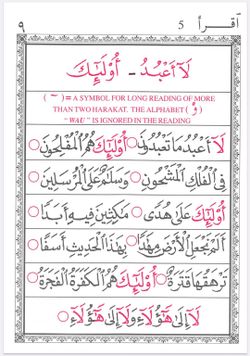 ٩ 5 اَقْرَأْ
لَآ اَعْبُدُ - أُوْلَٰٓئِكَ
( ~ ) = A SYMBOL FOR LONG READING OF MORE
THAN TWO HARAKAT. THE ALPHABET ( وْ )
“ WAU ” IS IGNORED IN THE READING
لَآ أَعْبُدُ مَا تَعْبُدُونَ ○ أُوْلَٰٓئِكَ هُمُ الْمُفْلِحُونَ ○
فِي الْفُلْكِ الْمَشْحُونِ ○ وَسَلَٰمٌ عَلَى الْمُرْسَلِينَ ○
أُوْلَٰٓئِكَ عَلَىٰ هُدًى ○ مَّٰكِثِينَ فِيهِ أَبَدًا ○
أَلَمْ نَجْعَلِ الْأَرْضَ مِهَٰدًا ○ بِهَٰذَا الْحَدِيثِ أَسَفًا ○
تَرْهَقُهَا قَتَرَةٌ ○ أُوْلَٰٓئِكَ هُمُ الْكَفَرَةُ الْفَجَرَةُ ○
لَآ إِلَىٰ هَٰٓؤُلَآءِ وَلَآ إِلَىٰ هَٰٓؤُلَآءِ ○